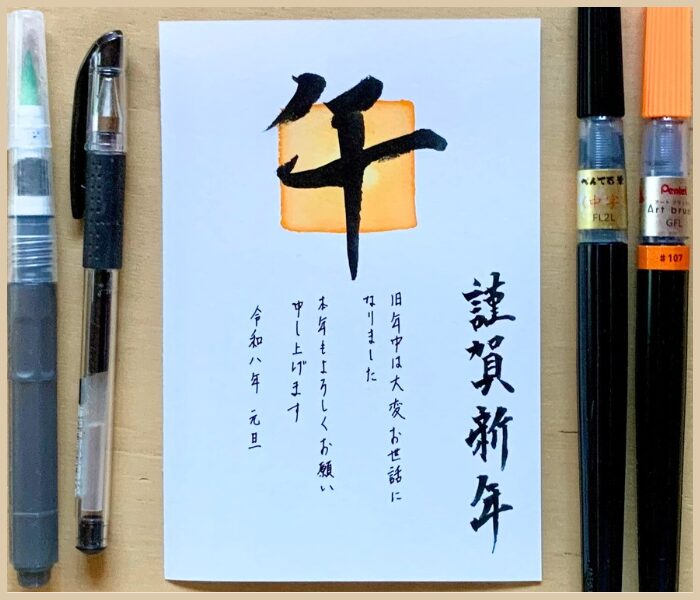 午
謹賀新年
旧年中は大変お世話に
なりました
本年もよろしくお願い
申し上げます
令和八年 元旦
ぺんてる筆
(中字)
FL2L
Pentel
Art brush
GFL
#107